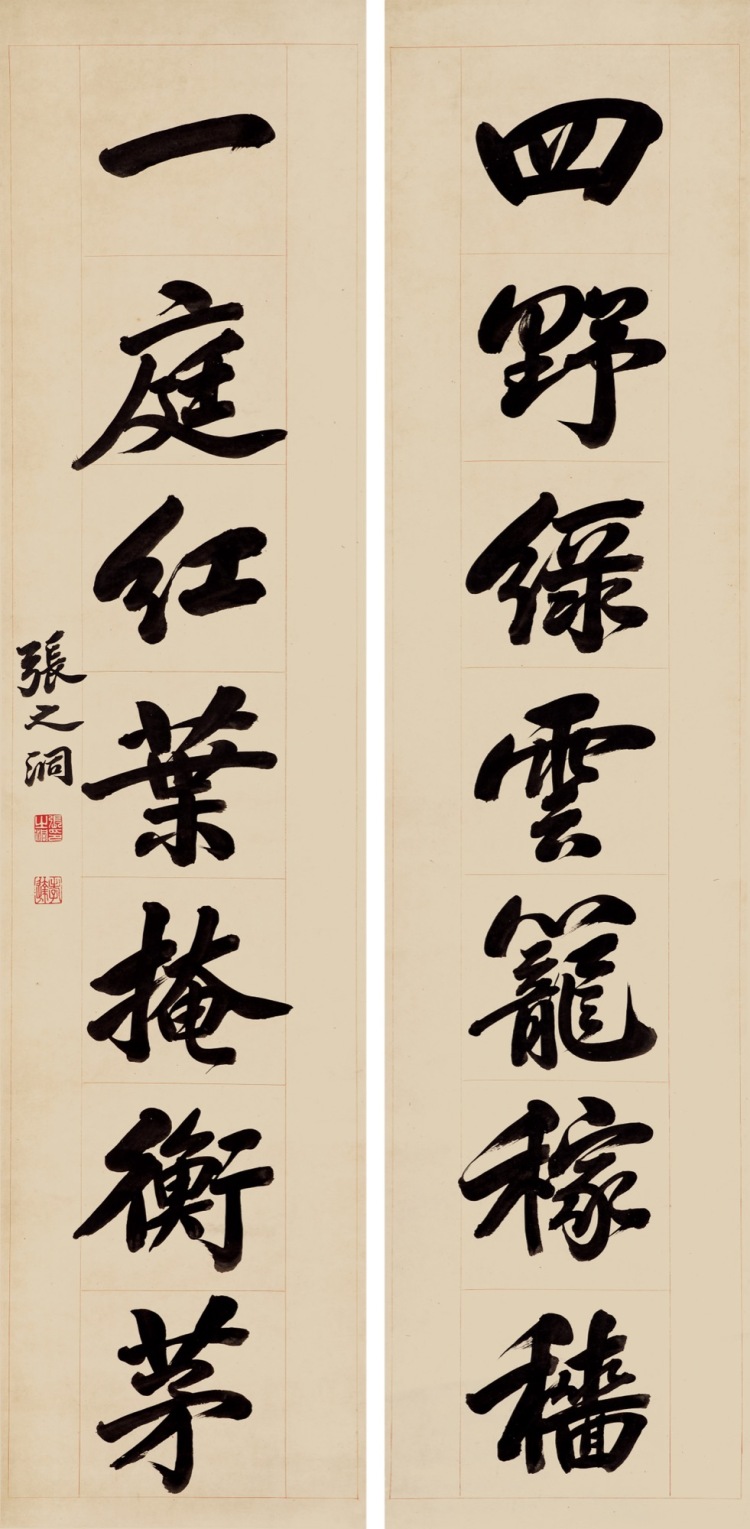 四野綠雲籠稼穡
一庭紅葉掩衡茅
張之洞